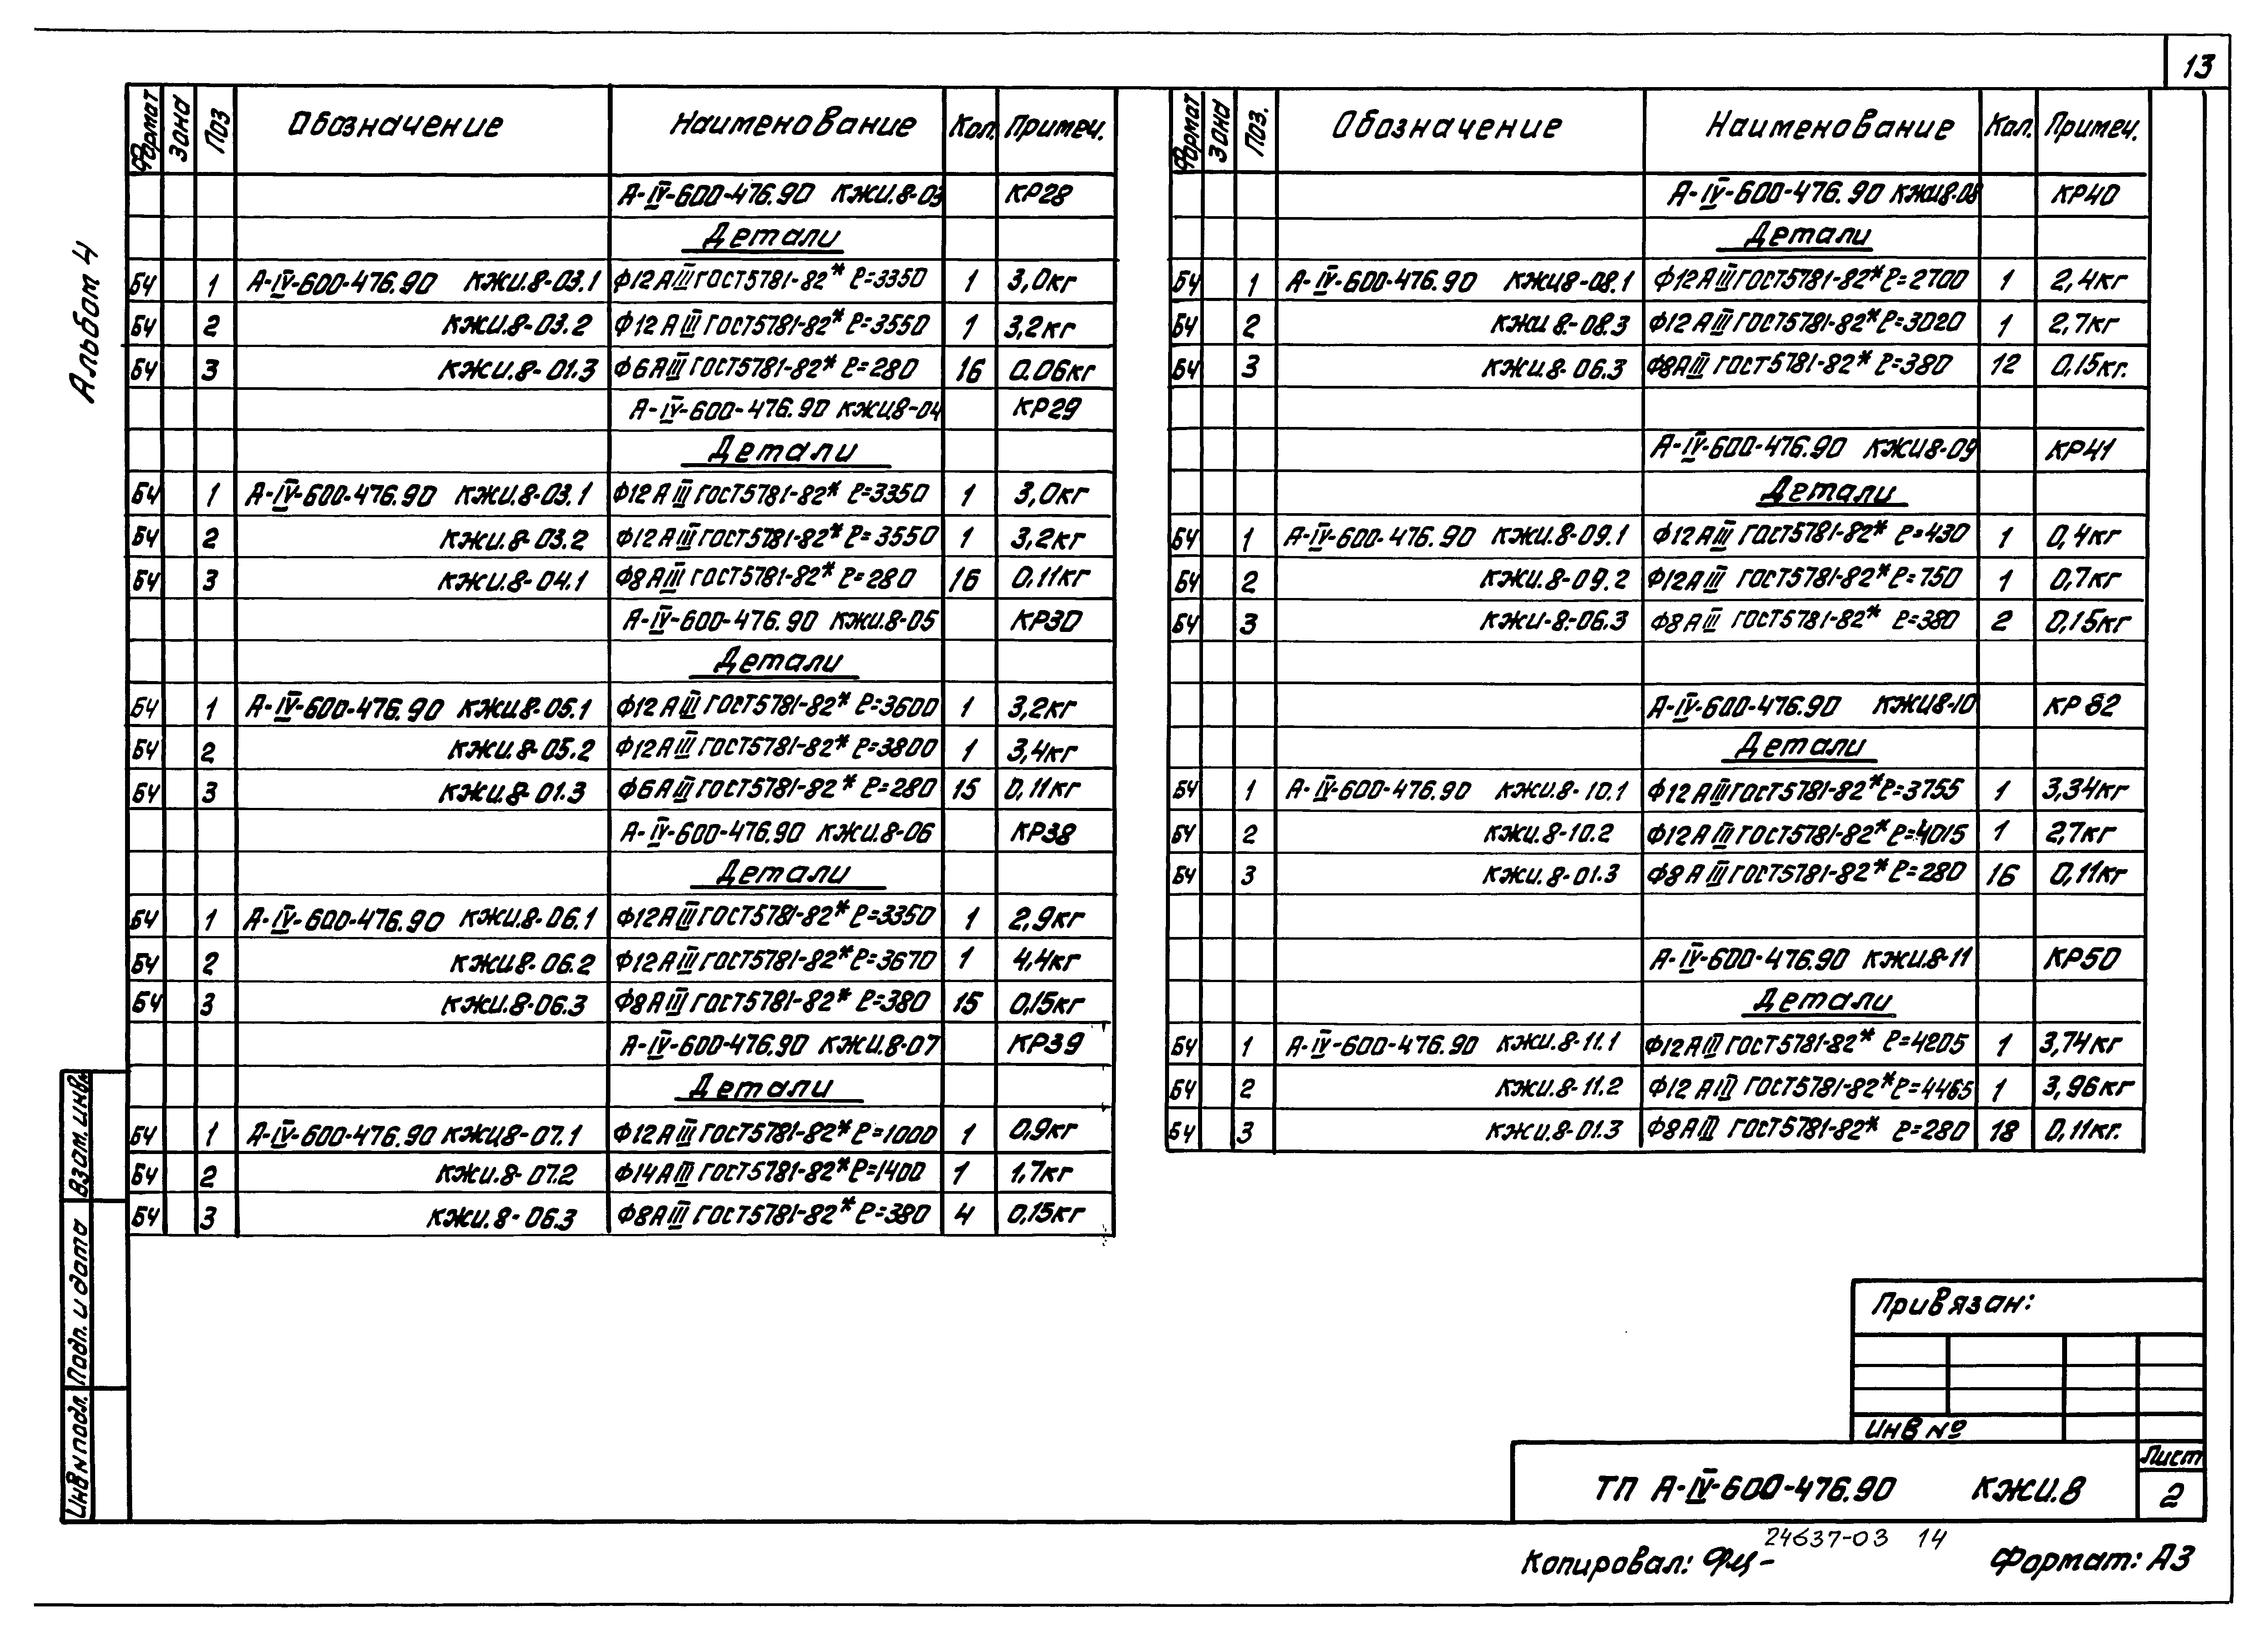 13
Альбом 4
Формат Зона Поз Обозначение Наименование Кол. Примеч.
А-IV-600-476.90 КЖИ.8-03 КР28
Детали
БЧ 1 А-IV-600-476.90 КЖИ.8-03.1 Ф12АIII ГОСТ5781-82* ℓ=3350 1 3,0кг
БЧ 2 КЖИ.8-03.2 Ф12АIII ГОСТ5781-82* ℓ=3550 1 3,2кг
БЧ 3 КЖИ.8-01.3 Ф6АIII ГОСТ5781-82* ℓ=280 16 0.06кг
А-IV-600-476.90 КЖИ8-04 КР29
Детали
БЧ 1 А-IV-600-476.90 КЖИ.8-03.1 Ф12АIII ГОСТ5781-82* ℓ=3350 1 3,0кг
БЧ 2 КЖИ.8-03.2 Ф12АIII ГОСТ5781-82* ℓ=3550 1 3,2кг
БЧ 3 КЖИ.8-04.1 Ф8АIII ГОСТ5781-82* ℓ=280 16 0,11кг
А-IV-600-476.90 КЖИ.8-05 КР30
Детали
БЧ 1 А-IV-600-476.90 КЖИ8-05.1 Ф12АIII ГОСТ5781-82* ℓ=3600 1 3,2кг
БЧ 2 КЖИ.8-05.2 Ф12АIII ГОСТ5781-82* ℓ=3800 1 3,4кг
БЧ 3 КЖИ.8-01.3 Ф6АIII ГОСТ5781-82* ℓ=280 15 0,11кг
А-IV-600-476.90 КЖИ.8-06 КР38
Детали
БЧ 1 А-IV-600-476.90 КЖИ.8-06.1 Ф12АIII ГОСТ5781-82* ℓ=3350 1 2,9кг
БЧ 2 КЖИ8-06.2 Ф12АIII ГОСТ5781-82* ℓ=3670 1 4,4кг
БЧ 3 КЖИ.8-06.3 Ф8АIII ГОСТ5781-82* ℓ=380 15 0,15кг
А-IV-600-476.90 КЖИ.8-07 КР39
Детали
БЧ 1 А-IV-600-476.90 КЖИ8-07.1 Ф12АIII ГОСТ5781-82* ℓ=1000 1 0,9кг
БЧ 2 КЖИ.8-07.2 Ф14АIII ГОСТ5781-82* ℓ=1400 1 1,7кг
БЧ 3 КЖИ.8-06.3 Ф8АIII ГОСТ5781-82* ℓ=380 4 0,15кг
Формат Зона Поз. Обозначение Наименование Кол. Примеч.
А-IV-600-476.90 КЖИ8-08 КР40
Детали
БЧ 1 А-IV-600-476.90 КЖИ8-08.1 Ф12АIII ГОСТ5781-82* ℓ=2700 1 2,4кг
БЧ 2 КЖИ 8-08.3 Ф12АIII ГОСТ5781-82* ℓ=3020 1 2,7кг
БЧ 3 КЖИ.8-06.3 Ф8АIII ГОСТ5781-82* ℓ=380 12 0,15кг.
А-IV-600-476.90 КЖИ8-09 КР41
Детали
БЧ 1 А-IV-600-476.90 КЖИ.8-09.1 Ф12АIII ГОСТ5781-82* ℓ=430 1 0,4кг
БЧ 2 КЖИ.8-09.2 Ф12АIII ГОСТ5781-82* ℓ=750 1 0,7кг
БЧ 3 КЖИ-8-06.3 Ф8АIII ГОСТ5781-82* ℓ=380 2 0,15кг
А-IV-600-476.90 КЖИ8-10 КР 82
Детали
БЧ 1 А-IV-600-476.90 КЖИ.8-10.1 Ф12АIII ГОСТ5781-82* ℓ=3755 1 3,34кг
БЧ 2 КЖИ.8-10.2 Ф12АIII ГОСТ5781-82* ℓ=4015 1 2,7кг
БЧ 3 КЖИ.8-01.3 Ф8АIII ГОСТ5781-82* ℓ=280 16 0,11кг
А-IV-600-476.90 КЖИ.8-11 КР50
Детали
БЧ 1 А-IV-600-476.90 КЖИ.8-11.1 Ф12АIII ГОСТ5781-82* ℓ=4205 1 3,74кг
БЧ 2 КЖИ.8-11.2 Ф12АIII ГОСТ5781-82* ℓ=4465 1 3,96кг
БЧ 3 КЖИ.8-01.3 Ф8АIII ГОСТ5781-82* ℓ=280 18 0,11кг.
Взам. инв.
Подп. и дата
Инв N подл.
Привязан:
Инв №
ТП А-IV-600-476.90 КЖИ.8
Лист
2
24637-03 14
Копировал: Фц- Формат: А3